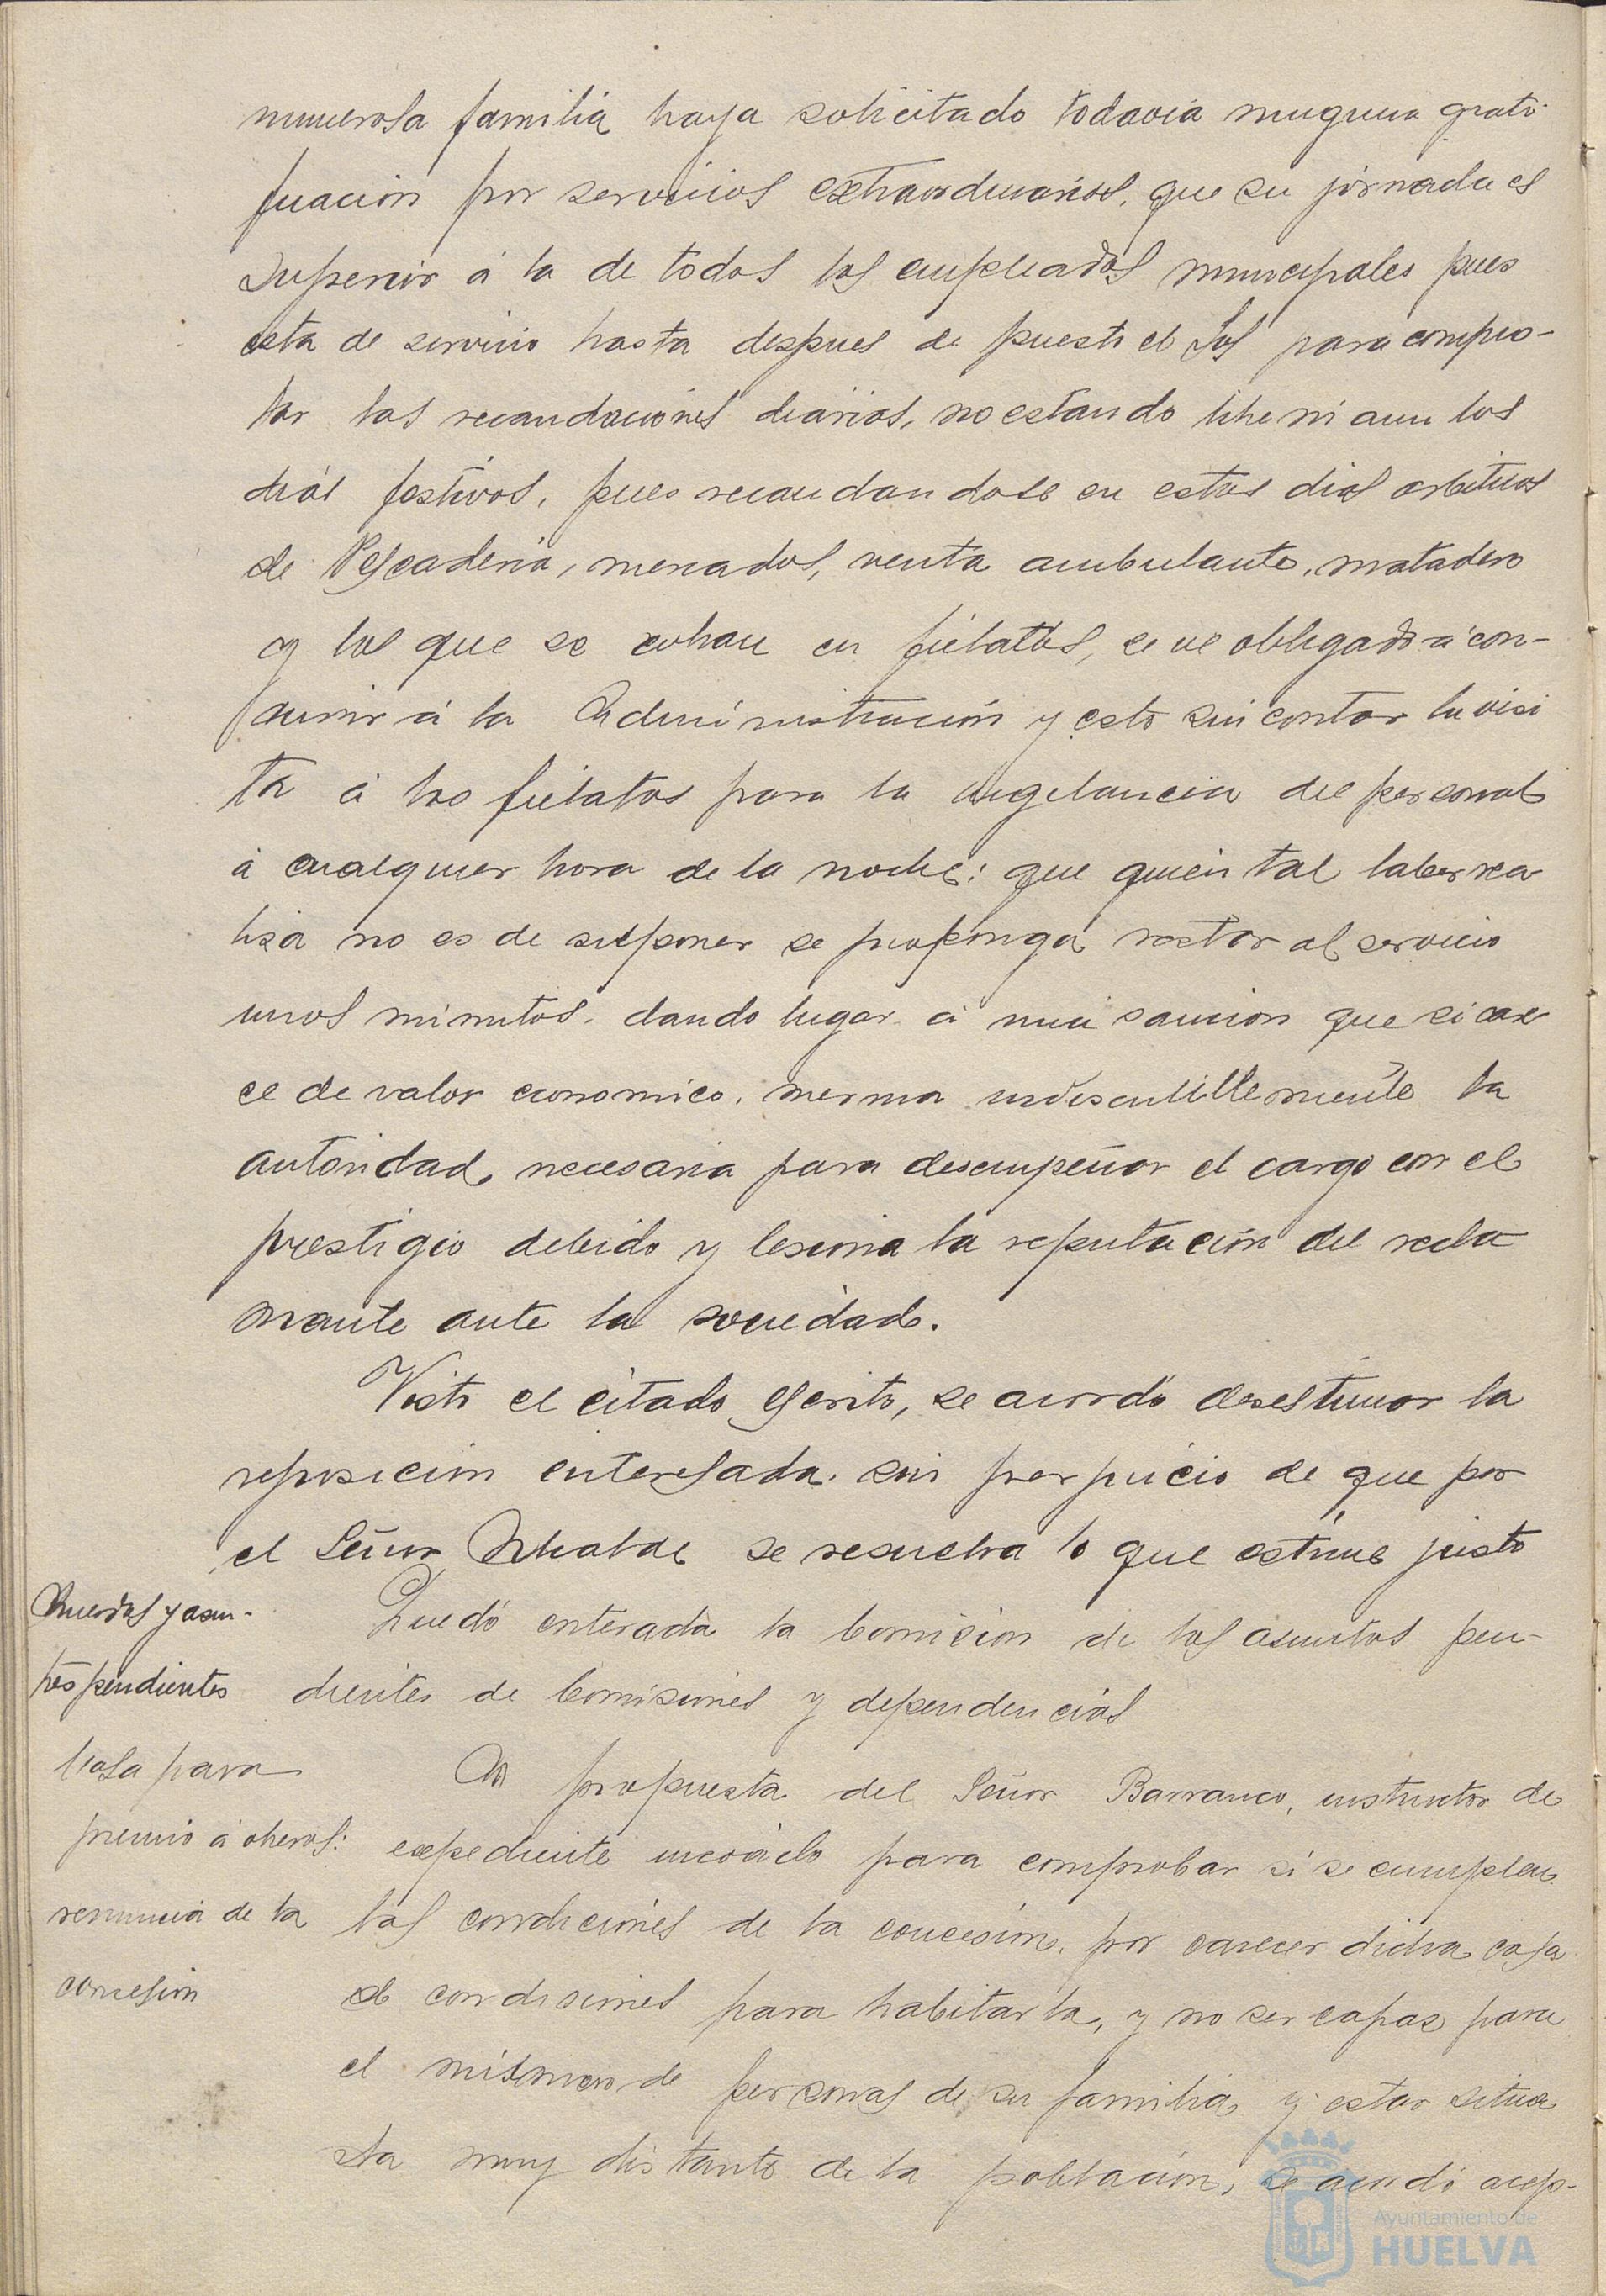 numerosa familia haya solicitado todavia ninguna grati-
ficación por servicios extraordinarios, que su jornada es
superior á la de todos los empleados municipales pues
esta de servicio hasta despues de puesto el Sol para comple-
tar las recaudaciones diarias, no estando libre ni aun los
dias festivos, pues recaudandose en estos dias arbitrios
de Pescaderia, mercados, venta ambulante, matadero
y los que se cobran en fielatos, se ve obligado á con-
currir á la Administración y esto sin contar la visi
ta á los fielatos para la vigilancia del personal
á cualquier hora de la noche; que quien tal labor rea
liza no es de suponer se proponga restar al servicio
unos minutos, dando lugar á una sancion que si care
ce de valor economico, merma indiscutiblemente la
autoridad necesaria para desempeñar el cargo con el
prestigio debido y lesiona la reputación del recla
mante ante la sociedad.
Visto el citado escrito, se acordó desestimar la
reposición interesada sin perjuicio de que por
el Señor Alcalde se resuelva lo que estime justo
Acuerdos y asun-
tos pendientes
Quedó enterada la Comision de los asuntos pen-
dientes de Comisiones y dependencias
Casa para
premio á obreros:
renuncia de la
concesion
A propuesta del Señor Barranco, instructor de
expediente incoado para comprobar si se cumplen
las condiciones de la concesion, por carecer dicha casa
de condiciones para habitarla, y no ser capaz para
el número de personas de su familia y estar situa
da muy distante de la población, se acordó acep-
Ayuntamiento de
HUELVA